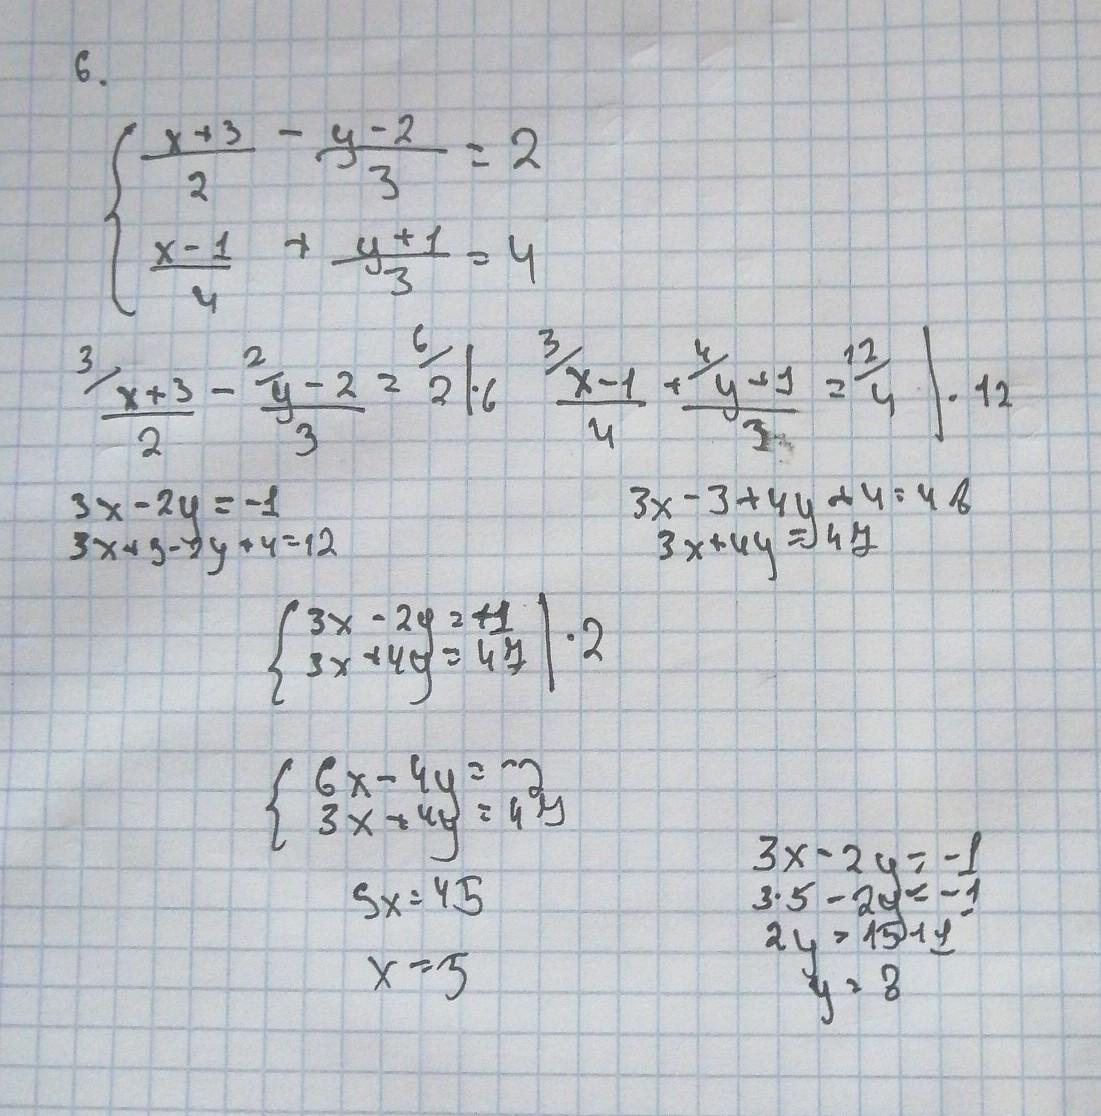 6.
x+3/2 - y-2/3 = 2
x-1/4 + y+1/3 = 4
3/ x+3/2 - 2/ y-2/3 = 6/ 2 |·6
3/ x-1/4 + 4/ y+1/3 = 12/ 4 |·12
3x-2y=-1
3x+9-2y+4=12
3x-3+4y+4=48
3x+4y=47
3x-2y=-1
3x+4y=47 |·2
6x-4y=-2
3x+4y=47
9x=45
x=5
3x-2y=-1
3·5-2y=-1
2y=15+1
y=8